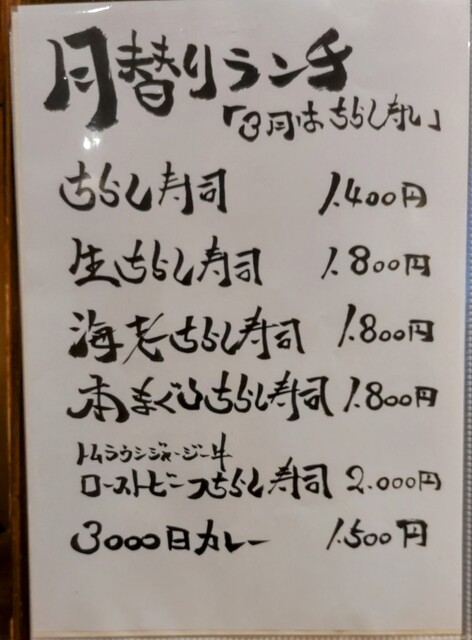 月替りランチ
「3月はちらし寿し」
ちらし寿司 1.400円
生ちらし寿司 1.800円
海老ちらし寿司 1.800円
本まぐろちらし寿司 1.800円
トムラウシジャージー牛
ローストビーフちらし寿司 2.000円
3000日カレー 1.500円